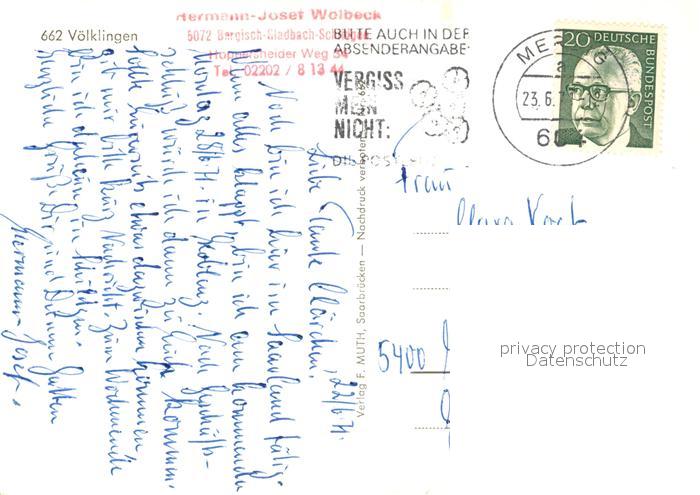 662 Völklingen
Hermann-Josef Wolbeck
5072 Bergisch-Gladbach-Schildgen
Hoppersheider Weg 54
Tel. 02202 / 8 13 44
BITTE AUCH IN DER
ABSENDERANGABE
VERGISS
MEIN
NICHT:
DIE POST
MERZIG
a
23.6.
664
20 DEUTSCHE BUNDESPOST
Verlag F. MUTH, Saarbrücken — Nachdruck verboten
22/6.71.
Liebe Tante Clärchen,
Noch bin ich hier im Saarland tätig.
Wenn alles klappt, bin ich am kommenden
Montag 28/6.71. in Koblenz. Nach Geschäfts-
schluß würde ich dann zu Euch kommen.
Sollte Eurerseits etwas dazwischen kommen,
gib mir bitte kurz Nachricht. Zum Wochenende
bin ich daheim in Schildgen.
Herzliche Grüße Dir und Deinem Gatten
Hermann-Josef.
Frau
5400
privacy protection
Datenschutz